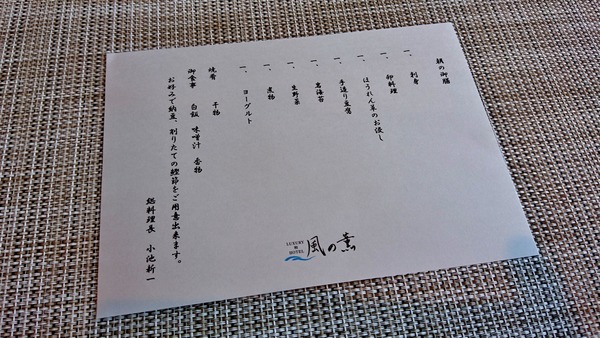 朝の御膳
一、刺身
一、卵料理
一、ほうれん草のお浸し
一、手造り豆腐
一、岩海苔
一、生野菜
一、煮物
一、ヨーグルト
焼肴 干物
御食事 白飯 味噌汁 香物
お好みで納豆、削りたての鰹節をご用意出来ます。
総料理長 小池新一
LUXURY
和
HOTEL
風の薫